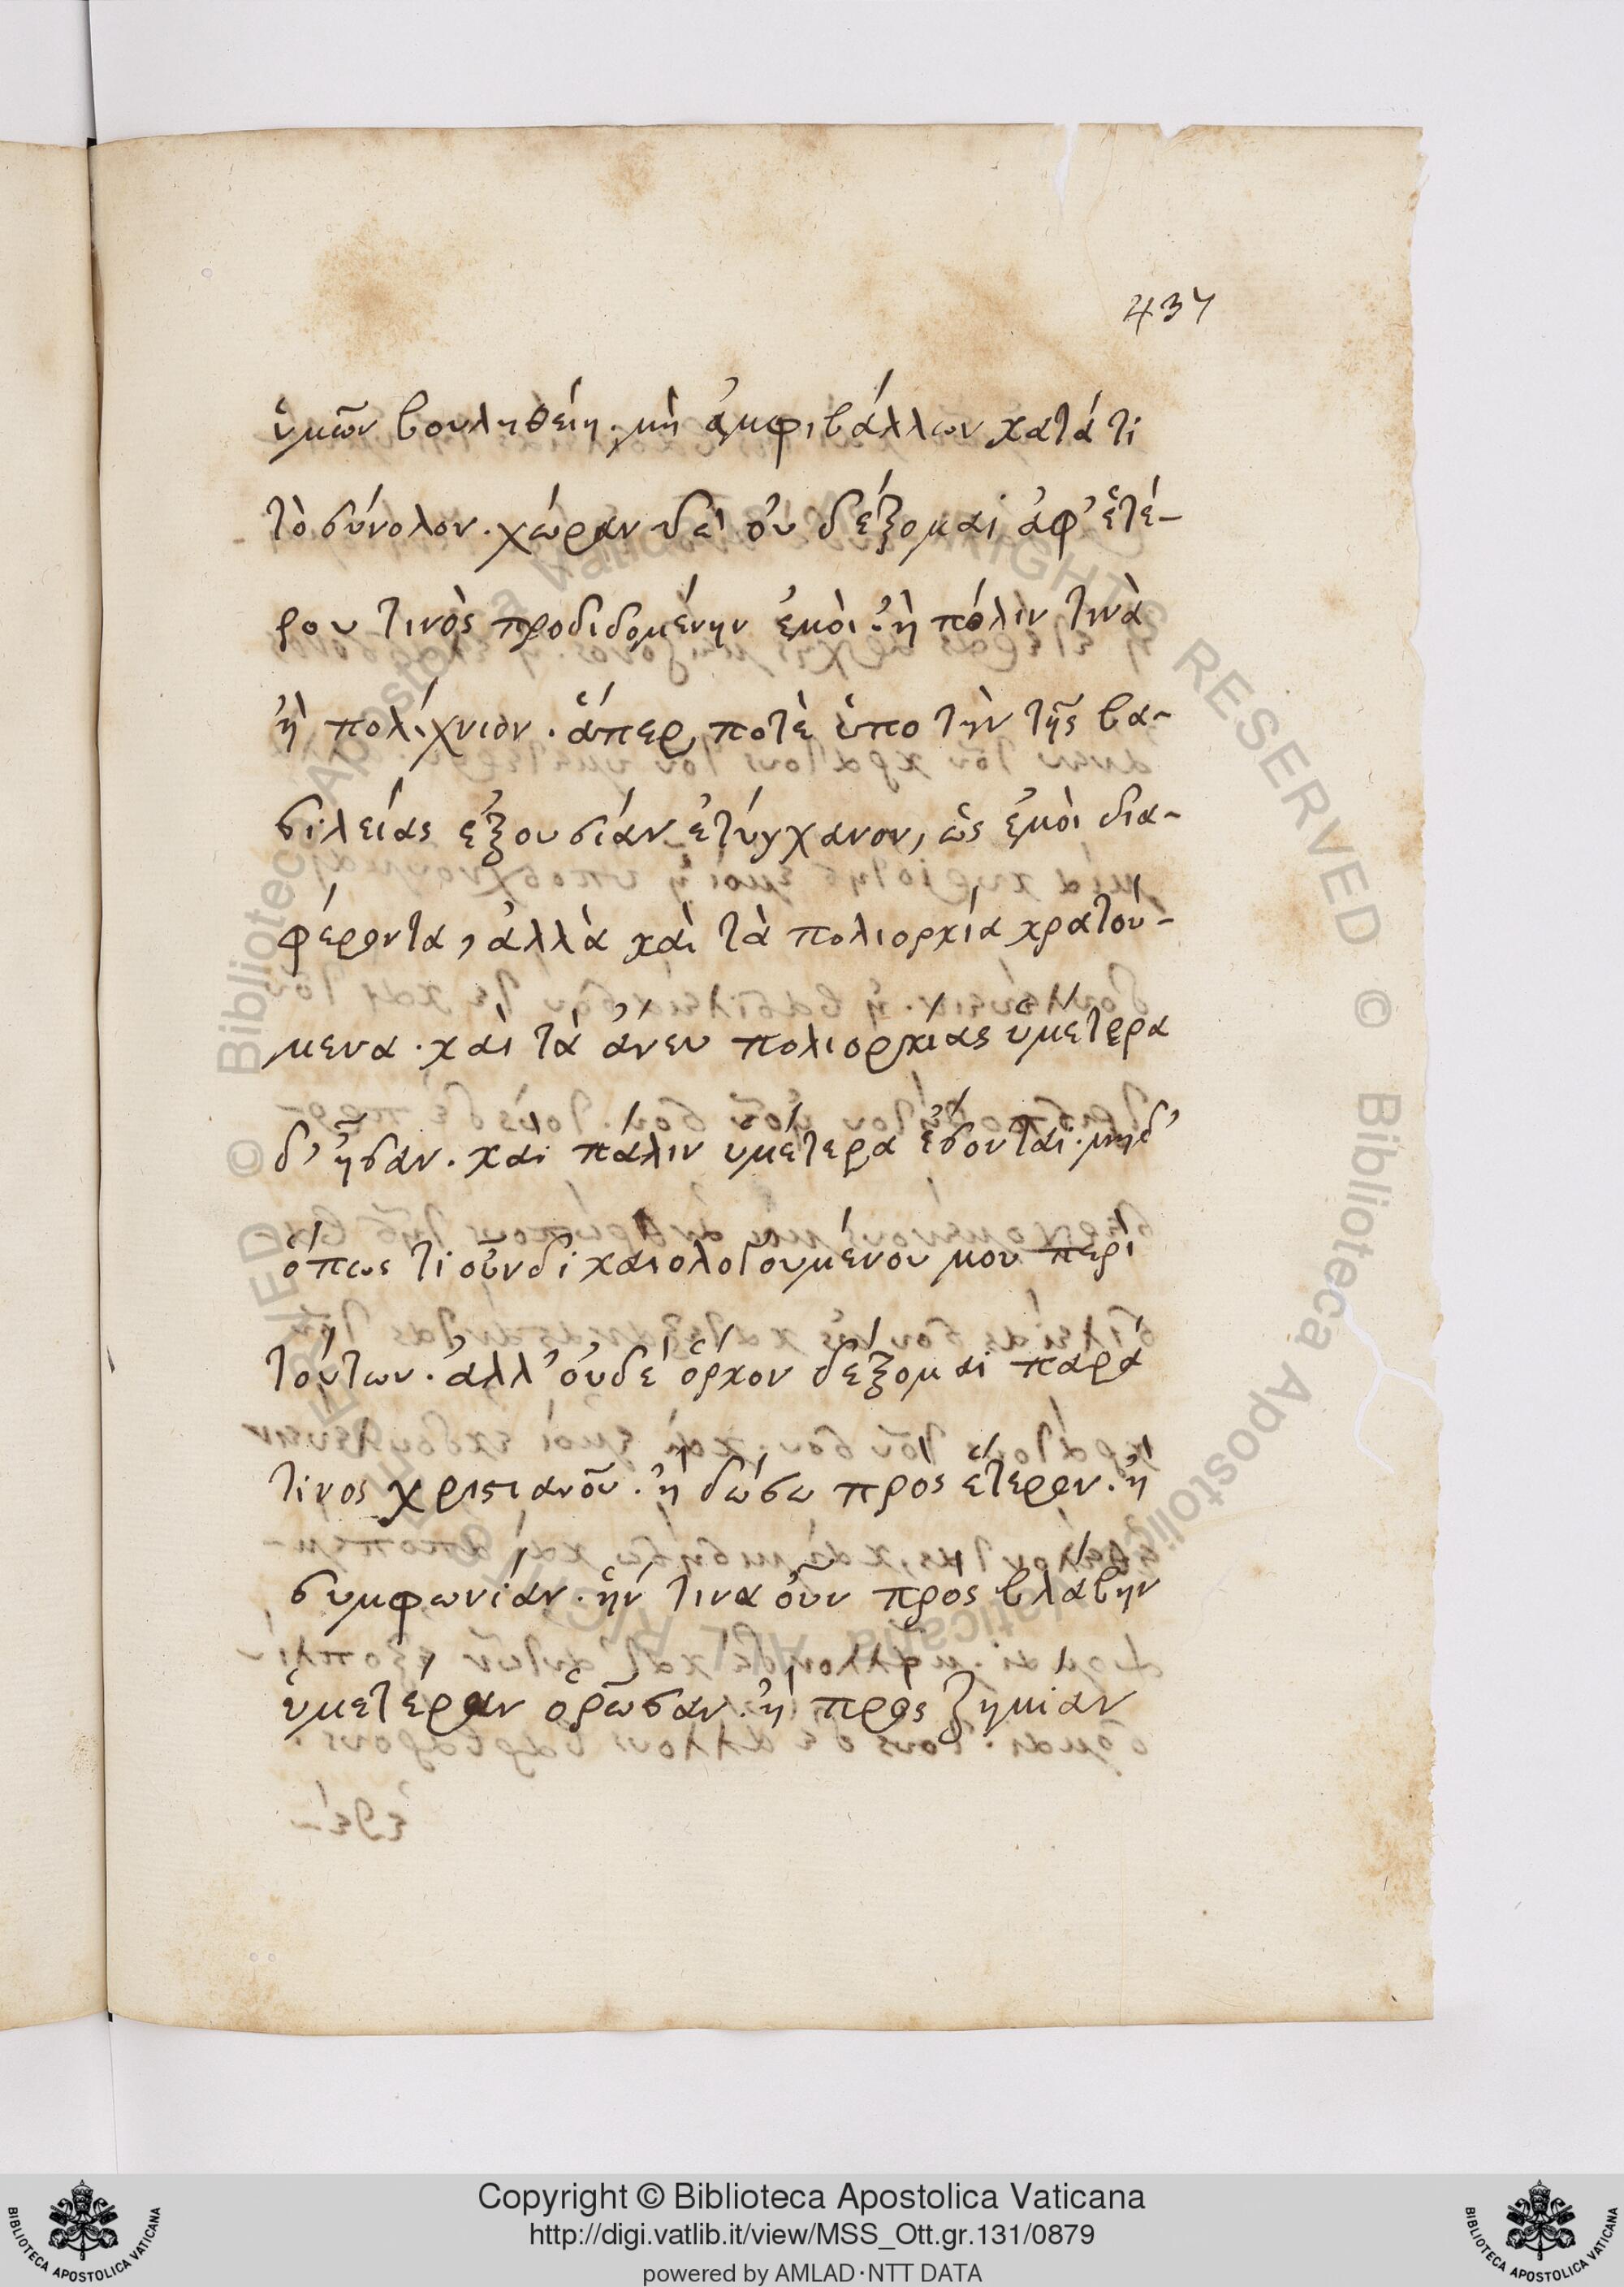 437
ὑμῶν βουληθείη. μὴ ἀμφιβάλλων κατά τι
τὸ σύνολον. χώραν δὲ οὐ δέξομαι ἀφ' ἑτέ-
ρου τινὸς προδιδομένην ἐμοὶ. ἢ πόλιν τινὰ
ἢ πολίχνιον. ἅπερ ποτὲ ὑπο τὴν τῆς βα-
σιλείας ἐξουσίαν ἐτύγχανον, ὡς ἐμοὶ δια-
φέροντα, ἀλλὰ καὶ τὰ πολιορκία κρατού-
μενα. καὶ τὰ ἄνευ πολιορκίας ὑμέτερα
δ' ἦσαν. καὶ πάλιν ὑμέτερα ἔσονται. μηδ'
ὅπως τι οὖν δικαιολογουμένου μου περὶ
τούτων. ἀλλ' οὐδὲ ὅρκον δέξομαι παρά
τινος χριστιανοῦ. ἢ δώσω πρὸς ἕτερον. ἢ
συμφωνίαν. ἥν τινα οὖν πρὸς βλάβην
ὑμετέραν ὁρῶσαν. ἢ πρὸς ζημίαν
Copyright © Biblioteca Apostolica Vaticana
http://digi.vatlib.it/view/MSS_Ott.gr.131/0879
powered by AMLAD·NTT DATA
BIBLIOTECA APOSTOLICA VATICANA
BIBLIOTECA APOSTOLICA VATICANA